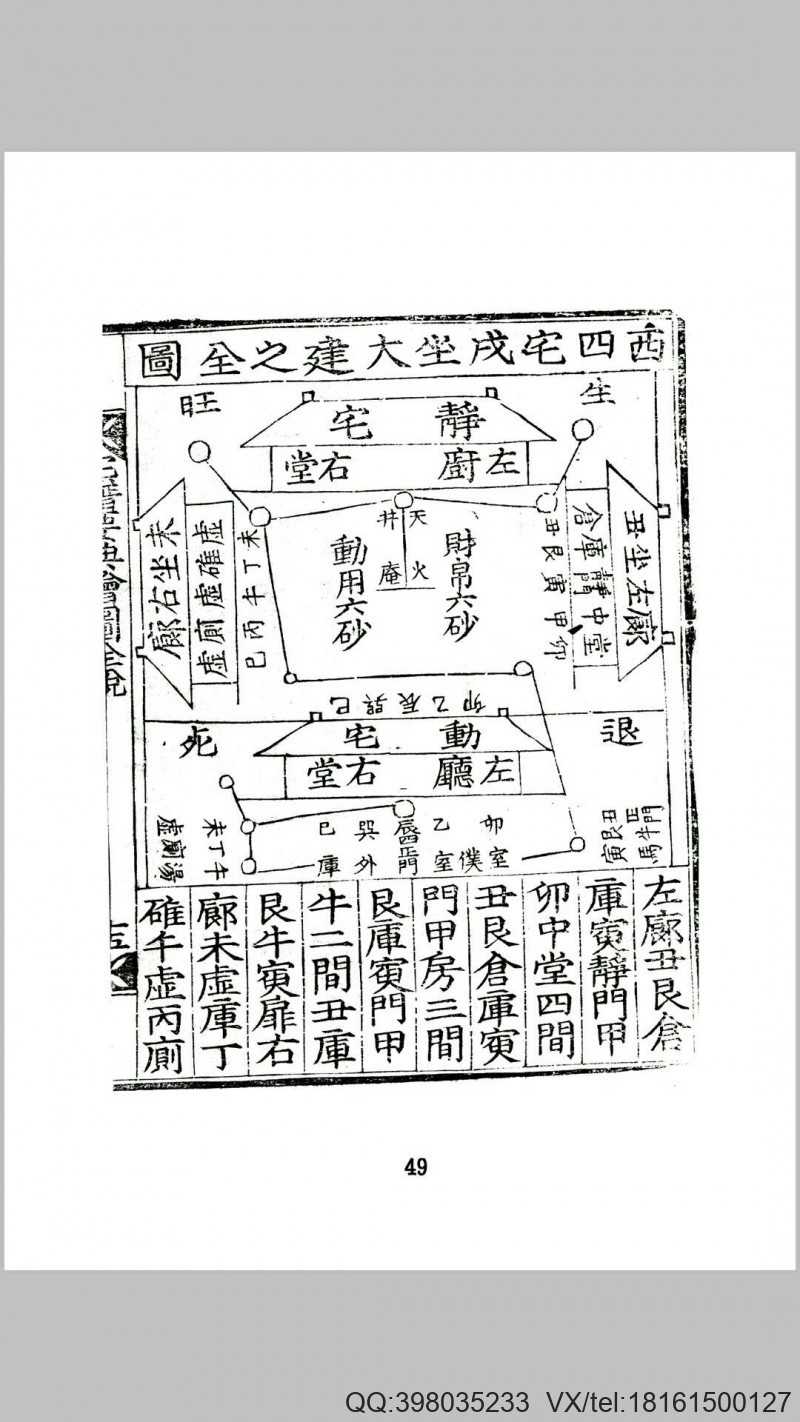 西四宅戌坐大建之全圖
生
旺
靜宅
左廚
右堂
天井
火庵
財帛六砂
動用六砂
丑艮寅甲卯
倉庫靜門中堂
丑坐左廊
未丁午丙巳
虛碓虛廁虛
未坐右廊
卯乙辰巽巳
退
死
動宅
左廳
右堂
卯室
乙僕室
巽外
巳庫
丑艮寅
正門牛馬
未丁午
虛廁湯
左廊丑艮倉
庫寅靜門甲
卯中堂四間
丑艮倉庫寅
門甲房三間
艮庫寅門甲
牛二間丑庫
艮牛寅扉右
廊未虛庫丁
碓午虛丙廁
49
QQ:398035233 VX/tel:18161500127